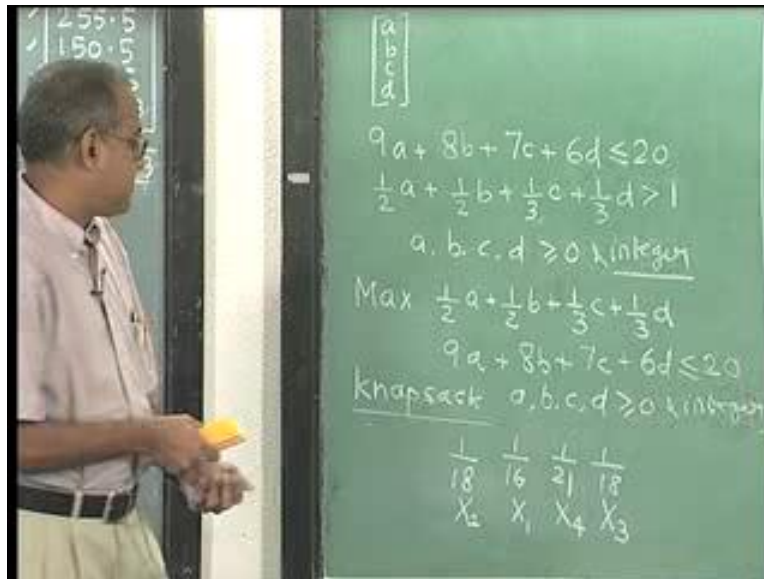 255.5
150.5
a
b
c
d
9a + 8b + 7c + 6d ≤ 20
1/2 a + 1/2 b + 1/3 c + 1/3 d > 1
a, b, c, d ≥ 0 & integer
Max 1/2 a + 1/2 b + 1/3 c + 1/3 d
9a + 8b + 7c + 6d ≤ 20
Knapsack a, b, c, d ≥ 0 & integer
1/18 1/16 1/21 1/18
X₂ X₁ X₄ X₃